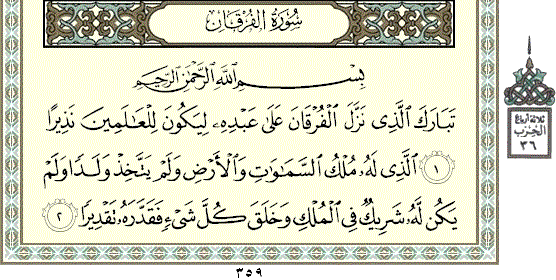 سُورَةُ الفُرْقَان
بِسْمِ اللَّهِ الرَّحْمَٰنِ الرَّحِيمِ
تَبَارَكَ الَّذِى نَزَّلَ الْفُرْقَانَ عَلَىٰ عَبْدِهِۦ لِيَكُونَ لِلْعَالَمِينَ نَذِيرًا
١ الَّذِى لَهُۥ مُلْكُ السَّمَاوَاتِ وَالْأَرْضِ وَلَمْ يَتَّخِذْ وَلَدًا وَلَمْ
يَكُن لَّهُۥ شَرِيكٌ فِى الْمُلْكِ وَخَلَقَ كُلَّ شَىْءٍ فَقَدَّرَهُۥ تَقْدِيرًا ٢
ثلاثة أرباع
الحزب
٣٦
٣٥٩